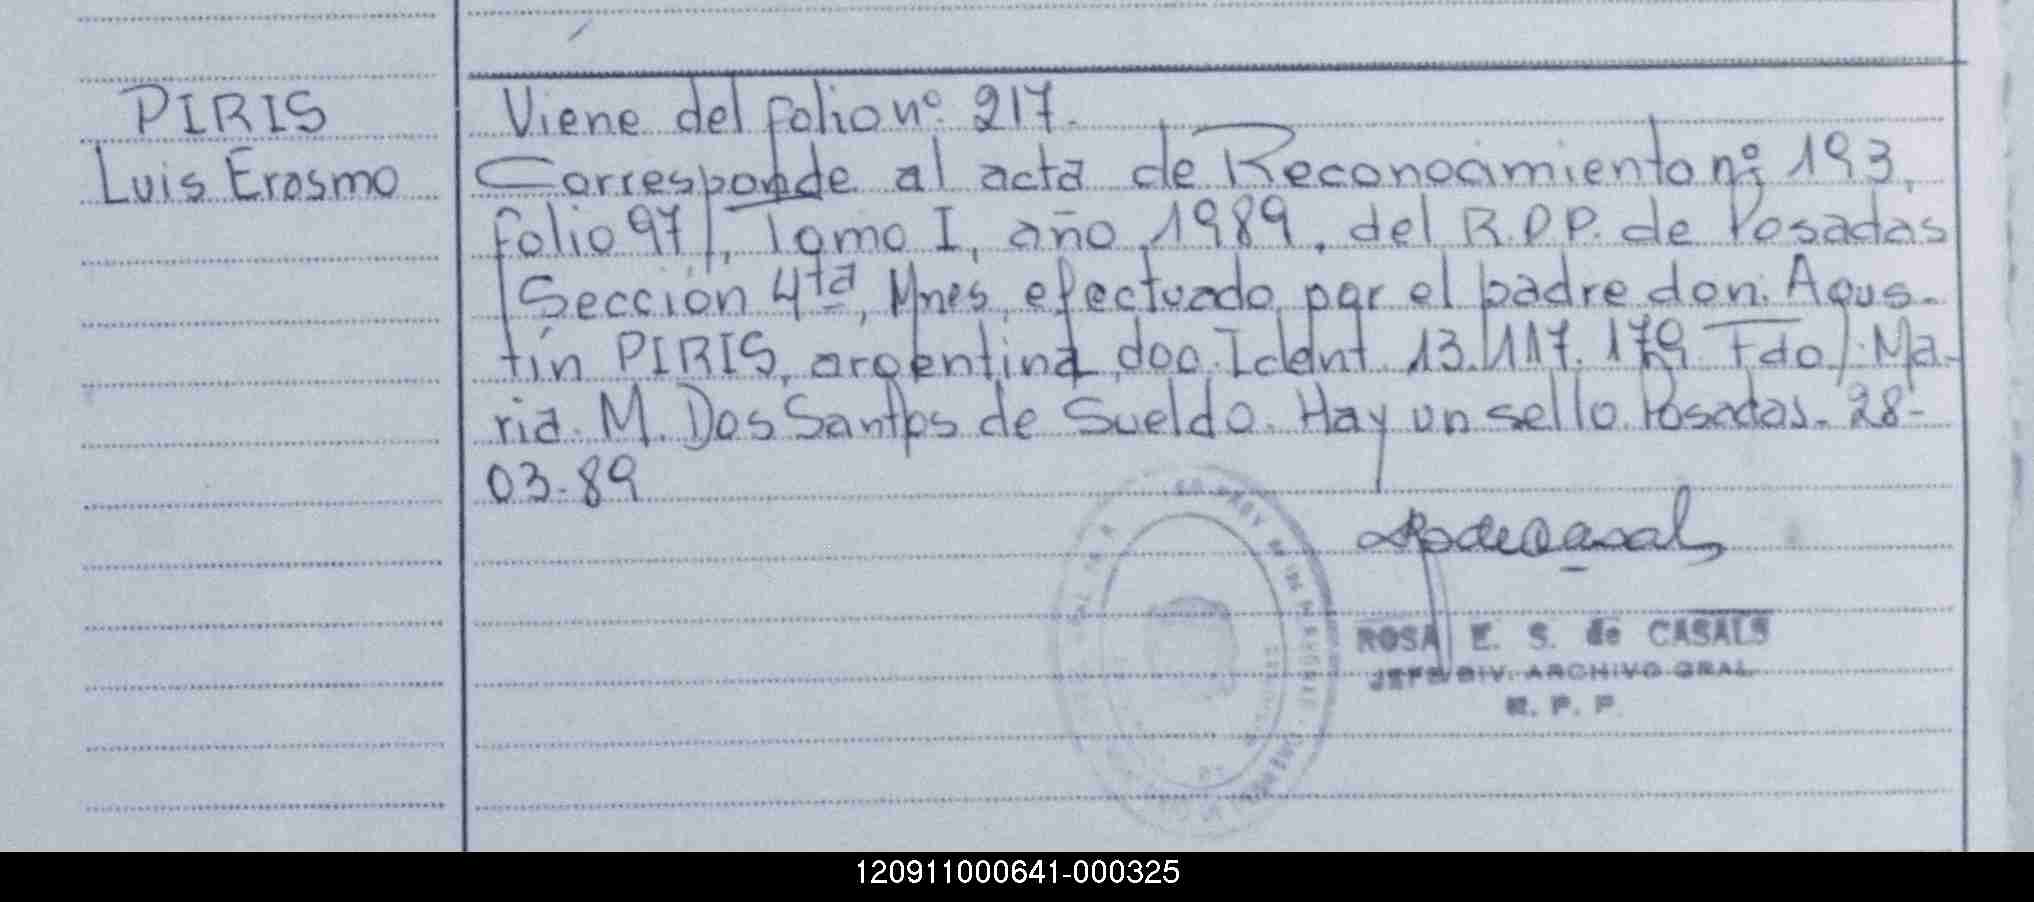 PIRIS
Luis Erasmo
Viene del folio nº 217.
Corresponde al acta de Reconocimiento nº 193,
folio 97, Tomo I, año 1989, del R.P.P. de Posadas
Sección 4ta, Mnes, efectuado por el padre don Agus-
tín PIRIS, argentina doc. Ident. 13.117.179 Fdo/. Ma-
ria M. Dos Santos de Sueldo. Hay un sello. Posadas. 28-
03-89
ROSA E. S. de CASALS
JEFE DIV. ARCHIVO GRAL
R. P. P.
120911000641-000325